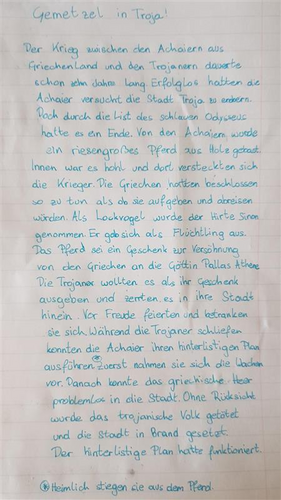 Gemetzel in Troja!
Der Krieg zwischen den Achaiern aus
Griechenland und den Trojanern dauerte
schon zehn Jahre lang. Erfolglos hatten die
Achaier versucht die Stadt Troja zu erobern.
Doch durch die List des schlauen Odysseus
hatte es ein Ende. Von den Achaiern wurde
ein riesengroßes Pferd aus Holz gebaut.
Innen war es hohl und dort versteckten sich
die Krieger. Die Griechen hatten beschlossen
so zu tun als ob sie aufgeben und abreisen
würden. Als Lockvogel wurde der Hirte Sinon
genommen. Er gab sich als Flüchtling aus.
Das Pferd sei ein Geschenk zur Versöhnung
von den Griechen an die Göttin Pallas Athene.
Die Trojaner wollten es als ihr Geschenk
ausgeben und zerrten es in ihre Stadt
hinein. Vor Freude feierten und betranken
sie sich. Während die Trojaner schliefen
konnten die Achaier ihren hinterlistigen Plan
ausführen. Zuerst nahmen sie sich die Wachen
vor. Danach konnte das griechische Heer
problemlos in die Stadt. Ohne Rücksicht
wurde das trojanische Volk getötet
und die Stadt in Brand gesetzt.
Der hinterlistige Plan hatte funktioniert.
Heimlich stiegen sie aus dem Pferd.